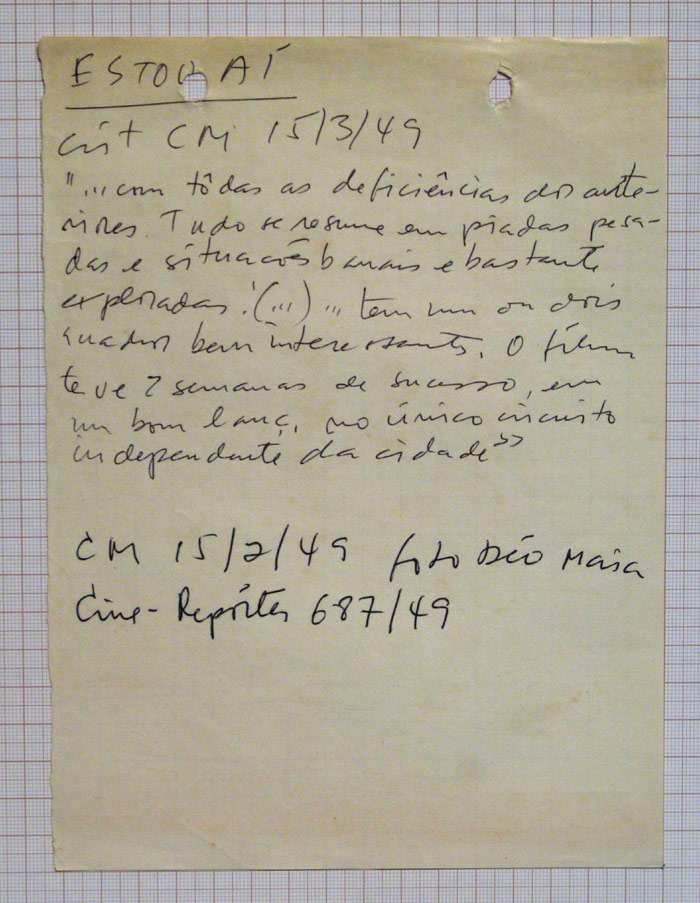 ESTOU AÍ
crít CM 15/3/49
"... com tôdas as deficiências dos ante-
riores. Tudo se resume em piadas pesa-
das e situações banais e bastante
exploradas. (...) ... tem um ou dois
quadros bem interessantes. O filme
teve 2 semanas de sucesso, em
um bom lanç. no único circuito
independente da cidade"
CM 15/2/49 foto Déo Maia
Cine-Repórter 687/49